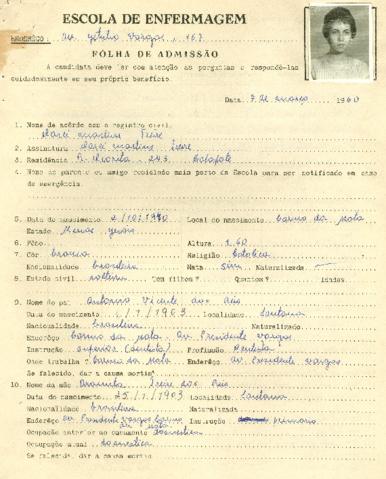 ESCOLA DE ENFERMAGEM
ENDERÊÇO: Av. Getulio Vargas, 167
FÔLHA DE ADMISSÃO
A candidata deve ler com atenção as perguntas e respondê-las
cuidadosamente em seu próprio benefício.
Data, 7 de março 1960
1. Nome de acôrdo com o registro civil
Martins Freire
2. Assinatura Martins Freire
3. Residência R. 243
4. Nome do parente ou amigo residindo mais perto da Escola para ser notificado em caso
de emergência.
5. Data do nascimento Local do nascimento Barra da Mata
Estado Minas Gerais
6. Pêso. Altura. 1.60
7. Côr branca Religião Católica
Nacionalidade brasileira Nata sim Naturalizada
8. Estado civil solteira Tem filhos? Quantos? Idades.
9. Nome do pai Antonio Vicente dos Reis
Data do nascimento /1/1903 Localidade Santana
Nacionalidade brasileira Naturalizado
Endereço Av. Presidente Vargas
Instrução superior (dentista) Profissão Dentista
Onde trabalha? Enderêço Av. Presidente Vargas
Se falecido, dar a causa mortis
10. Nome da mãe Freire dos Reis
Data do nascimento 25/1/1903 Localidade Santana
Nacionalidade brasileira Naturalizada
Enderêço Av. Presidente Vargas Instrução primario
da Mata
Ocupação anterior ao casamento doméstica
Ocupação atual doméstica
Se falecida, dar a causa mortis